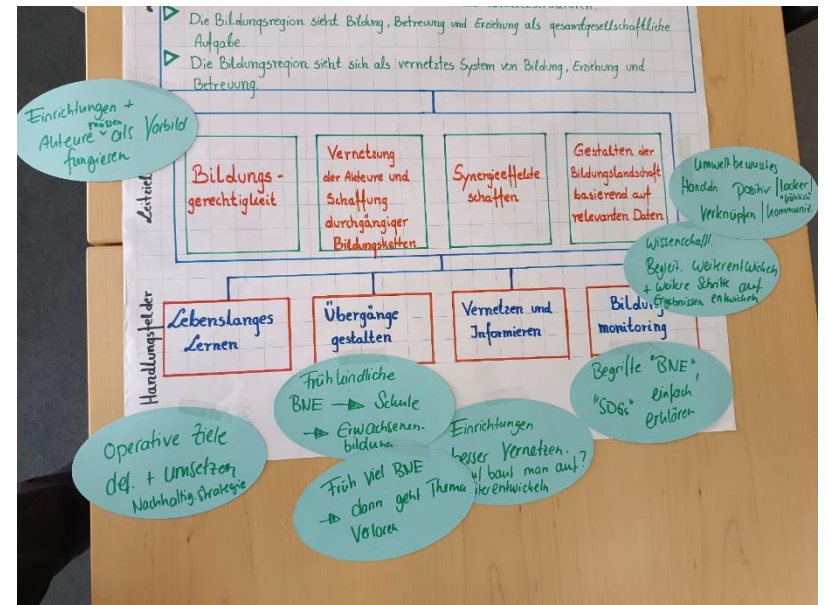 Die Bildungsregion sieht Bildung, Betreuung und Erziehung als gesamtgesellschaftliche
Aufgabe.
Die Bildungsregion sieht sich als vernetztes System von Bildung, Erziehung und
Betreuung.
Einrichtungen +
Auteure müssen als Vorbild
fungieren
Leitziel
Bildungs-
gerechtigkeit
Vernetzung
der Akteure und
Schaffung
durchgängiger
Bildungsketten
Synergieeffekte
schaffen
Gestalten der
Bildungslandschaft
basierend auf
relevanten Daten
Umweltbewusstes
Handeln positiv / locker /
"fröhlich"
verknüpfen / kommuniz.
Wissenschaftl.
Begleit. weiterentwickeln
+ weitere Schritte auf
Ergebnissen entwickeln
Handlungsfelder
Lebenslanges
Lernen
Übergänge
gestalten
Vernetzen und
Informieren
Bildungs
monitoring
Frühkindliche
BNE → Schule
→ Erwachsenen-
bildung
Begriffe "BNE"
"SDGs" einfach
erklären
Operative Ziele
def. + umsetzen
Nachhaltig.strategie
Einrichtungen
besser Vernetzen.
baut man auf?
iterentwickeln
Früh viel BNE
→ dann geht Thema
Verloren